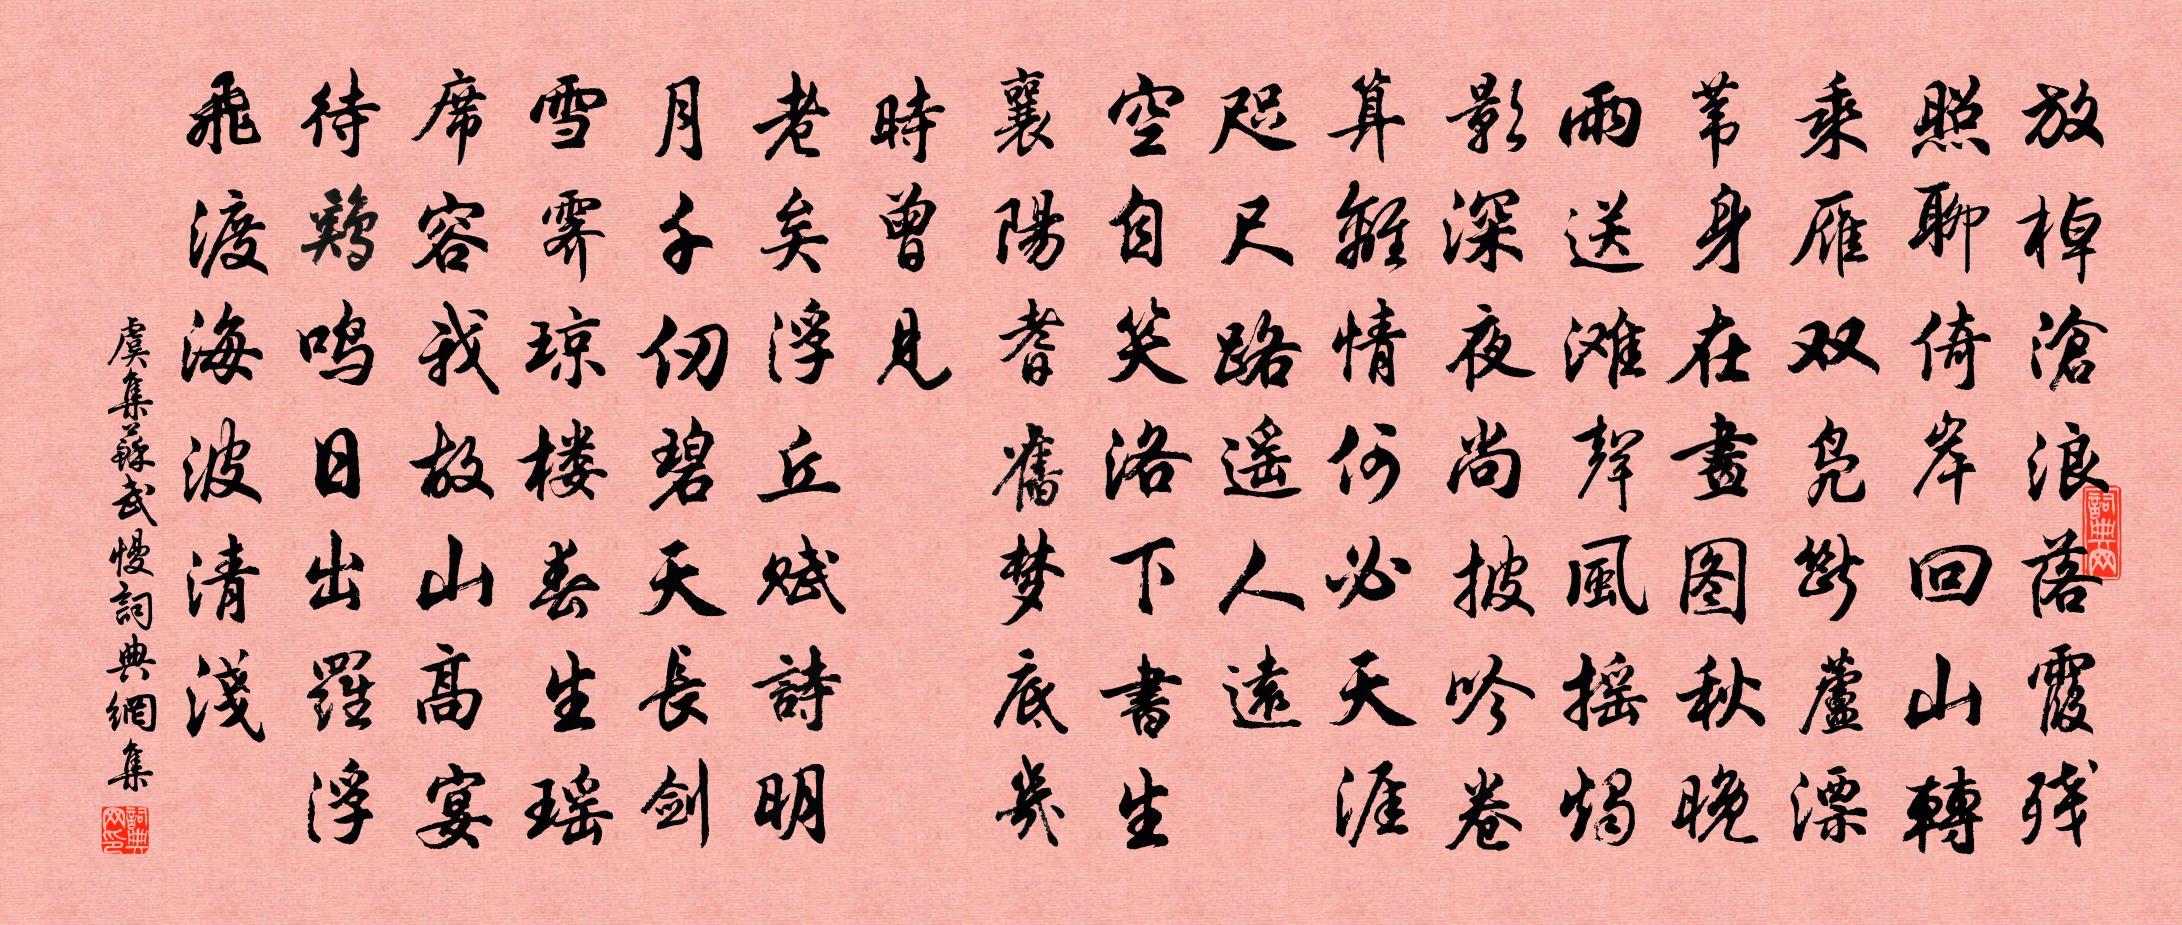 放棹滄浪落霞残
照聊倚岸回山轉
乘雁双凫斷蘆漂
苇身在畫图秋晚
雨送滩聲風摇燭
影深夜尚披吟卷
算離情何必天涯
咫尺路遥人遠
空自笑洛下書生
襄陽耆舊梦底幾
時曾見
老矣浮丘赋詩明
月千仞碧天長剑
雪霁琼楼春生瑶
席容我故山高宴
待鷄鸣日出羅浮
飛渡海波清淺
虞集蘇武慢詞典網集
詞典网
詞典网印